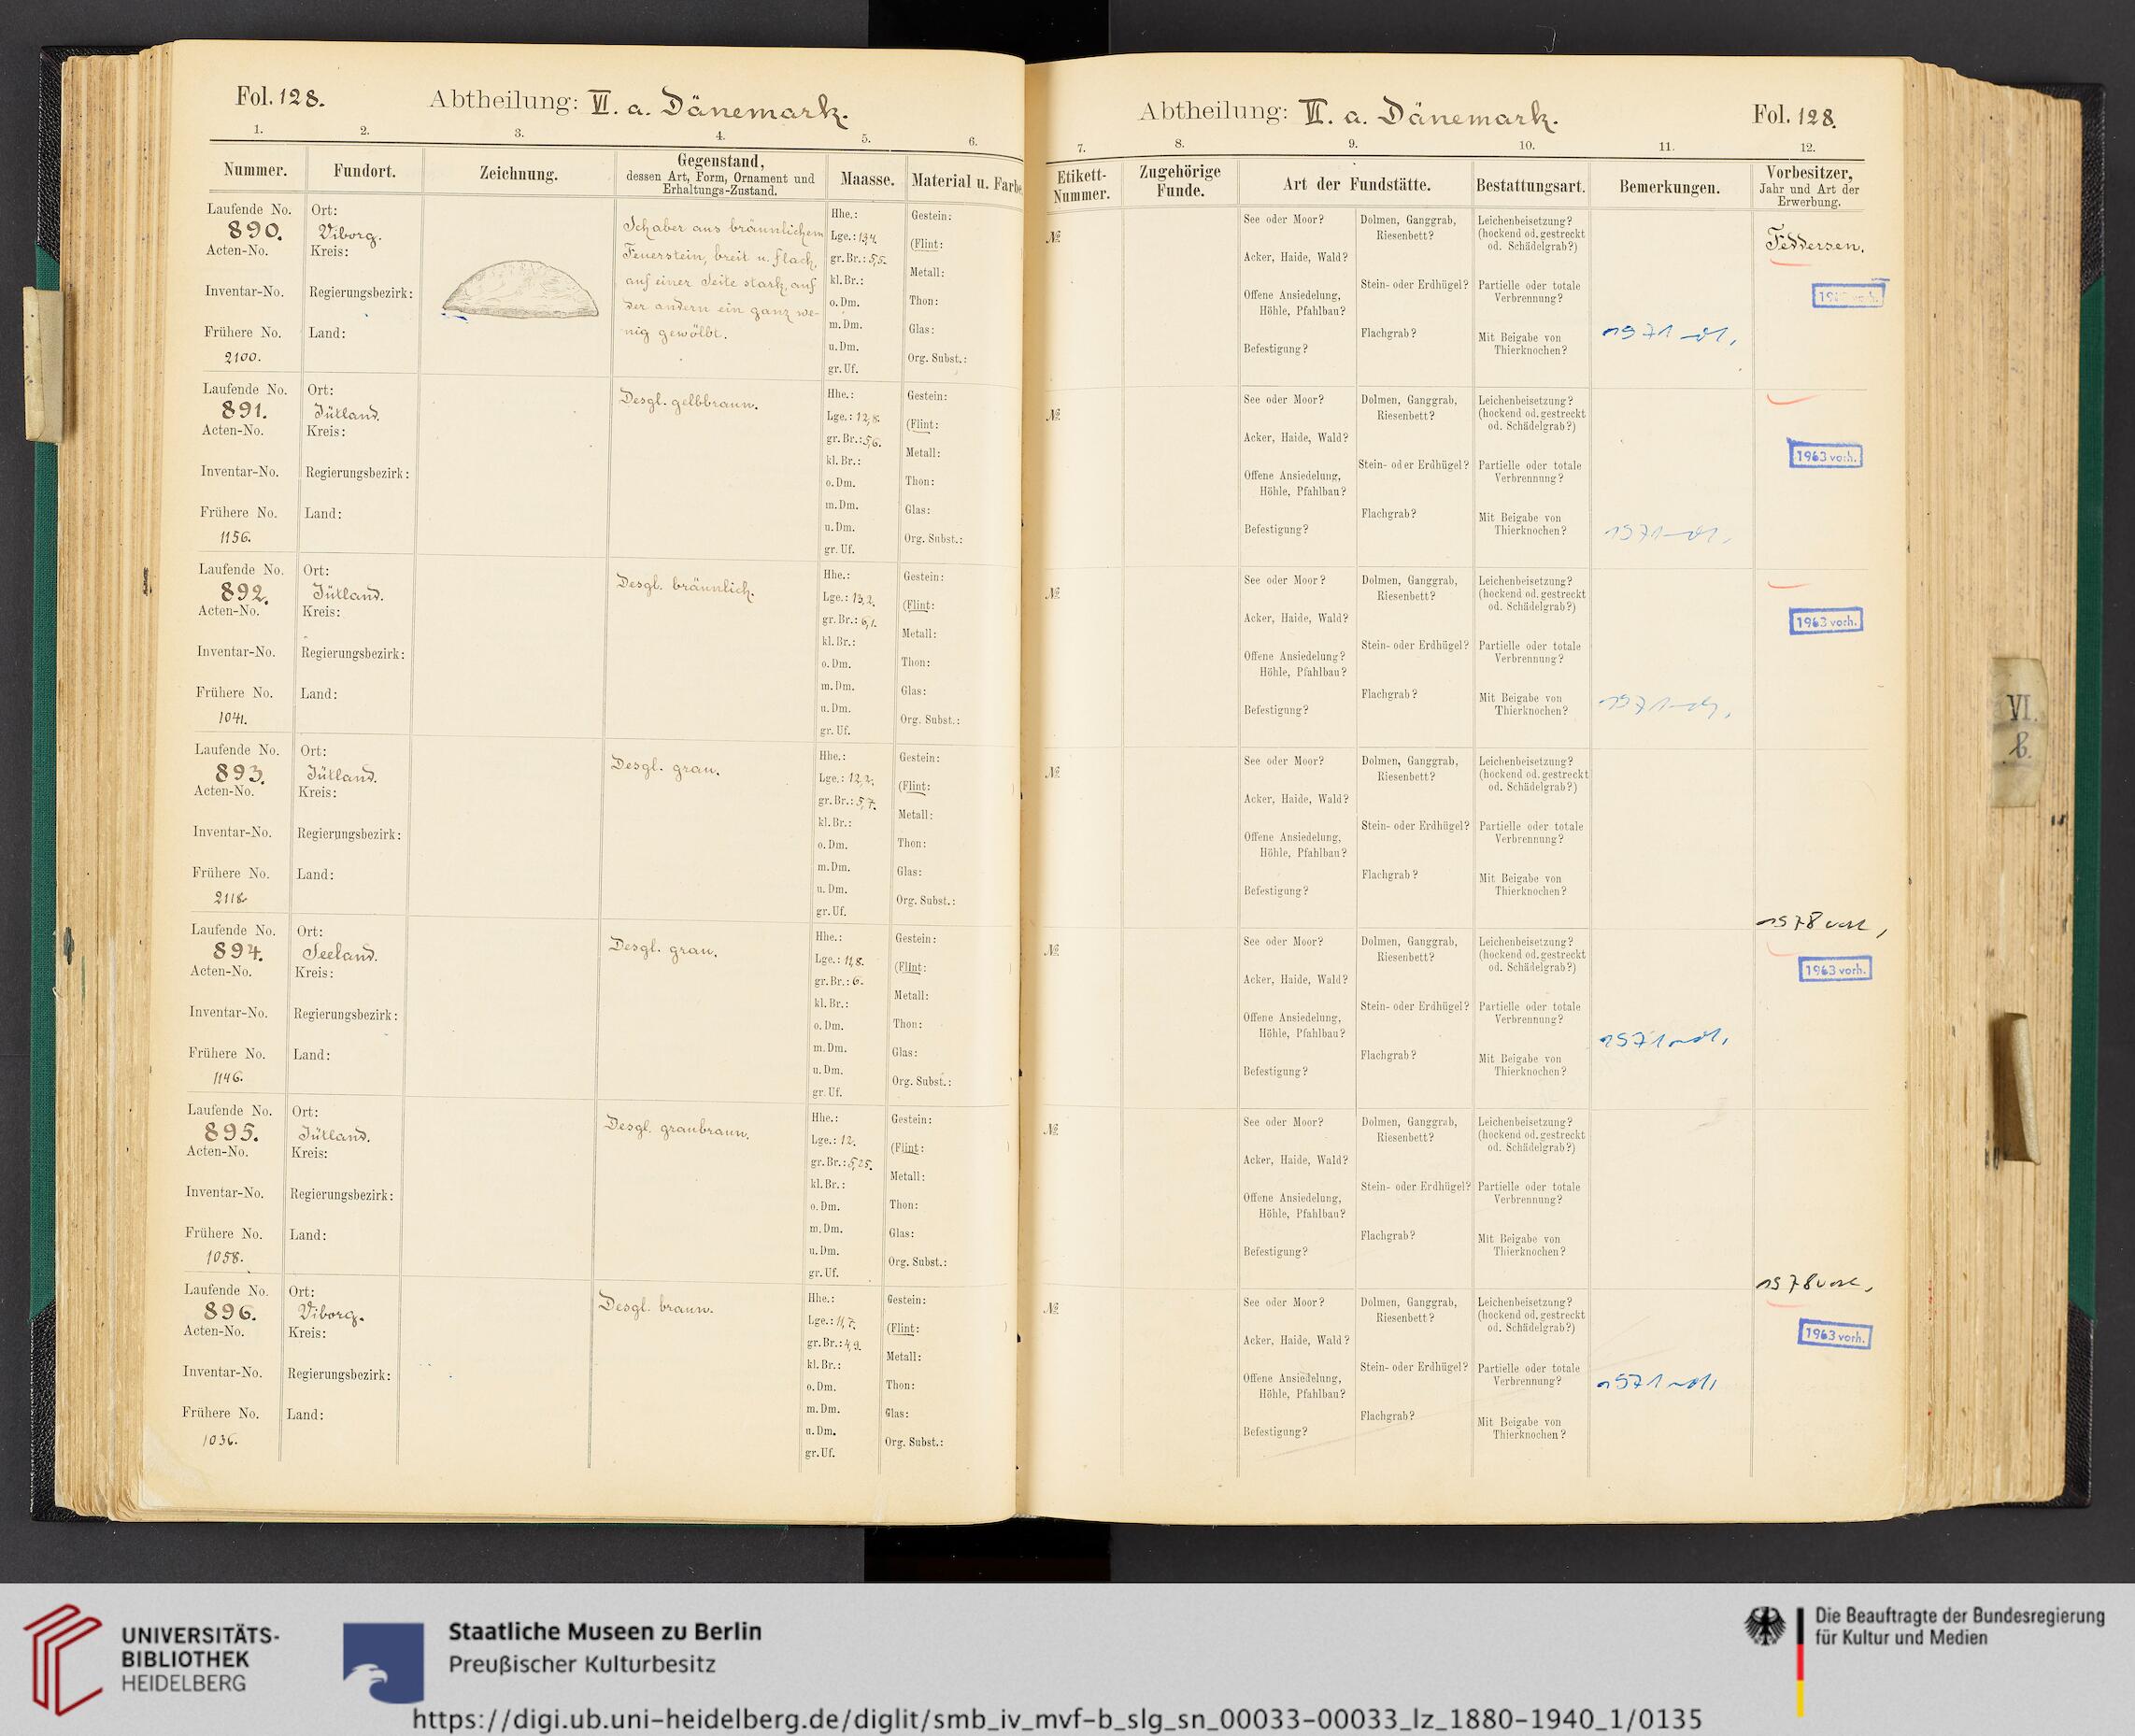 Fol. 128.
Abtheilung: VI. a. Dänemark.
1. 2. 3. 4. 5. 6.
Nummer. Fundort. Zeichnung. Gegenstand, dessen Art, Form, Ornament und Erhaltungs-Zustand. Maasse. Material u. Farbe.
Laufende No. 890.
Acten-No.
Inventar-No.
Frühere No. 2100.
Ort: Viborg.
Kreis:
Regierungsbezirk:
Land:
Schaber aus bräunlichem
Feuerstein, breit u. flach,
auf einer Seite stark, auf
der andern ein ganz we-
nig gewölbt.
Hhe.:
Lge.: 13,4.
gr. Br.: 5,5.
kl. Br.:
o. Dm.
m. Dm.
u. Dm.
gr. Uf.
Gestein:
(Flint:
Metall:
Thon:
Glas:
Org. Subst.:
Laufende No. 891.
Acten-No.
Inventar-No.
Frühere No. 1156.
Ort: Jütland.
Kreis:
Regierungsbezirk:
Land:
Desgl. gelbbraun.
Hhe.:
Lge.: 12,8.
gr. Br.: 5,6.
kl. Br.:
o. Dm.
m. Dm.
u. Dm.
gr. Uf.
Gestein:
(Flint:
Metall:
Thon:
Glas:
Org. Subst.:
Laufende No. 892.
Acten-No.
Inventar-No.
Frühere No. 1041.
Ort: Jütland.
Kreis:
Regierungsbezirk:
Land:
Desgl. bräunlich.
Hhe.:
Lge.: 13,2.
gr. Br.: 6,1.
kl. Br.:
o. Dm.
m. Dm.
u. Dm.
gr. Uf.
Gestein:
(Flint:
Metall:
Thon:
Glas:
Org. Subst.:
Laufende No. 893.
Acten-No.
Inventar-No.
Frühere No. 2118.
Ort: Jütland.
Kreis:
Regierungsbezirk:
Land:
Desgl. grau.
Hhe.:
Lge.: 12,2.
gr. Br.: 5,7.
kl. Br.:
o. Dm.
m. Dm.
u. Dm.
gr. Uf.
Gestein:
(Flint:
Metall:
Thon:
Glas:
Org. Subst.:
Laufende No. 894.
Acten-No.
Inventar-No.
Frühere No. 1146.
Ort: Seeland.
Kreis:
Regierungsbezirk:
Land:
Desgl. grau.
Hhe.:
Lge.: 11,8.
gr. Br.: 6.
kl. Br.:
o. Dm.
m. Dm.
u. Dm.
gr. Uf.
Gestein:
(Flint:
Metall:
Thon:
Glas:
Org. Subst.:
Laufende No. 895.
Acten-No.
Inventar-No.
Frühere No. 1058.
Ort: Jütland.
Kreis:
Regierungsbezirk:
Land:
Desgl. graubraun.
Hhe.:
Lge.: 12.
gr. Br.: 5,25.
kl. Br.:
o. Dm.
m. Dm.
u. Dm.
gr. Uf.
Gestein:
(Flint:
Metall:
Thon:
Glas:
Org. Subst.:
Laufende No. 896.
Acten-No.
Inventar-No.
Frühere No. 1036.
Ort: Viborg.
Kreis:
Regierungsbezirk:
Land:
Desgl. braun.
Hhe.:
Lge.: 11,7.
gr. Br.: 4,9.
kl. Br.:
o. Dm.
m. Dm.
u. Dm.
gr. Uf.
Gestein:
(Flint:
Metall:
Thon:
Glas:
Org. Subst.:
Abtheilung: VI. a. Dänemark.
Fol. 128.
7. 8. 9. 10. 11. 12.
Etikett-Nummer. Zugehörige Funde. Art der Fundstätte. Bestattungsart. Bemerkungen. Vorbesitzer, Jahr und Art der Erwerbung.
№
See oder Moor?
Acker, Haide, Wald?
Offene Ansiedelung,
Höhle, Pfahlbau?
Befestigung?
Dolmen, Ganggrab,
Riesenbett?
Stein- oder Erdhügel?
Flachgrab?
Leichenbeisetzung?
(hockend od. gestreckt
od. Schädelgrab?)
Partielle oder totale
Verbrennung?
Mit Beigabe von
Thierknochen?
1971
Feddersen.
№
See oder Moor?
Acker, Haide, Wald?
Offene Ansiedelung,
Höhle, Pfahlbau?
Befestigung?
Dolmen, Ganggrab,
Riesenbett?
Stein- oder Erdhügel?
Flachgrab?
Leichenbeisetzung?
(hockend od. gestreckt
od. Schädelgrab?)
Partielle oder totale
Verbrennung?
Mit Beigabe von
Thierknochen?
1971
1963 vorh.
№
See oder Moor?
Acker, Haide, Wald?
Offene Ansiedelung?
Höhle, Pfahlbau?
Befestigung?
Dolmen, Ganggrab,
Riesenbett?
Stein- oder Erdhügel?
Flachgrab?
Leichenbeisetzung?
(hockend od. gestreckt
od. Schädelgrab?)
Partielle oder totale
Verbrennung?
Mit Beigabe von
Thierknochen?
1971
1963 vorh.
№
See oder Moor?
Acker, Haide, Wald?
Offene Ansiedelung,
Höhle, Pfahlbau?
Befestigung?
Dolmen, Ganggrab,
Riesenbett?
Stein- oder Erdhügel?
Flachgrab?
Leichenbeisetzung?
(hockend od. gestreckt
od. Schädelgrab?)
Partielle oder totale
Verbrennung?
Mit Beigabe von
Thierknochen?
1978 vorh,
№
See oder Moor?
Acker, Haide, Wald?
Offene Ansiedelung,
Höhle, Pfahlbau?
Befestigung?
Dolmen, Ganggrab,
Riesenbett?
Stein- oder Erdhügel?
Flachgrab?
Leichenbeisetzung?
(hockend od. gestreckt
od. Schädelgrab?)
Partielle oder totale
Verbrennung?
Mit Beigabe von
Thierknochen?
1971
1963 vorh.
№
See oder Moor?
Acker, Haide, Wald?
Offene Ansiedelung,
Höhle, Pfahlbau?
Befestigung?
Dolmen, Ganggrab,
Riesenbett?
Stein- oder Erdhügel?
Flachgrab?
Leichenbeisetzung?
(hockend od. gestreckt
od. Schädelgrab?)
Partielle oder totale
Verbrennung?
Mit Beigabe von
Thierknochen?
1978 vorh,
№
See oder Moor?
Acker, Haide, Wald?
Offene Ansiedelung,
Höhle, Pfahlbau?
Befestigung?
Dolmen, Ganggrab,
Riesenbett?
Stein- oder Erdhügel?
Flachgrab?
Leichenbeisetzung?
(hockend od. gestreckt
od. Schädelgrab?)
Partielle oder totale
Verbrennung?
Mit Beigabe von
Thierknochen?
1971
1963 vorh.
VI.
b.
UNIVERSITÄTS-
BIBLIOTHEK
HEIDELBERG
Staatliche Museen zu Berlin
Preußischer Kulturbesitz
Die Beauftragte der Bundesregierung
für Kultur und Medien
https://digi.ub.uni-heidelberg.de/diglit/smb_iv_mvf-b_slg_sn_00033-00033_lz_1880-1940_1/0135